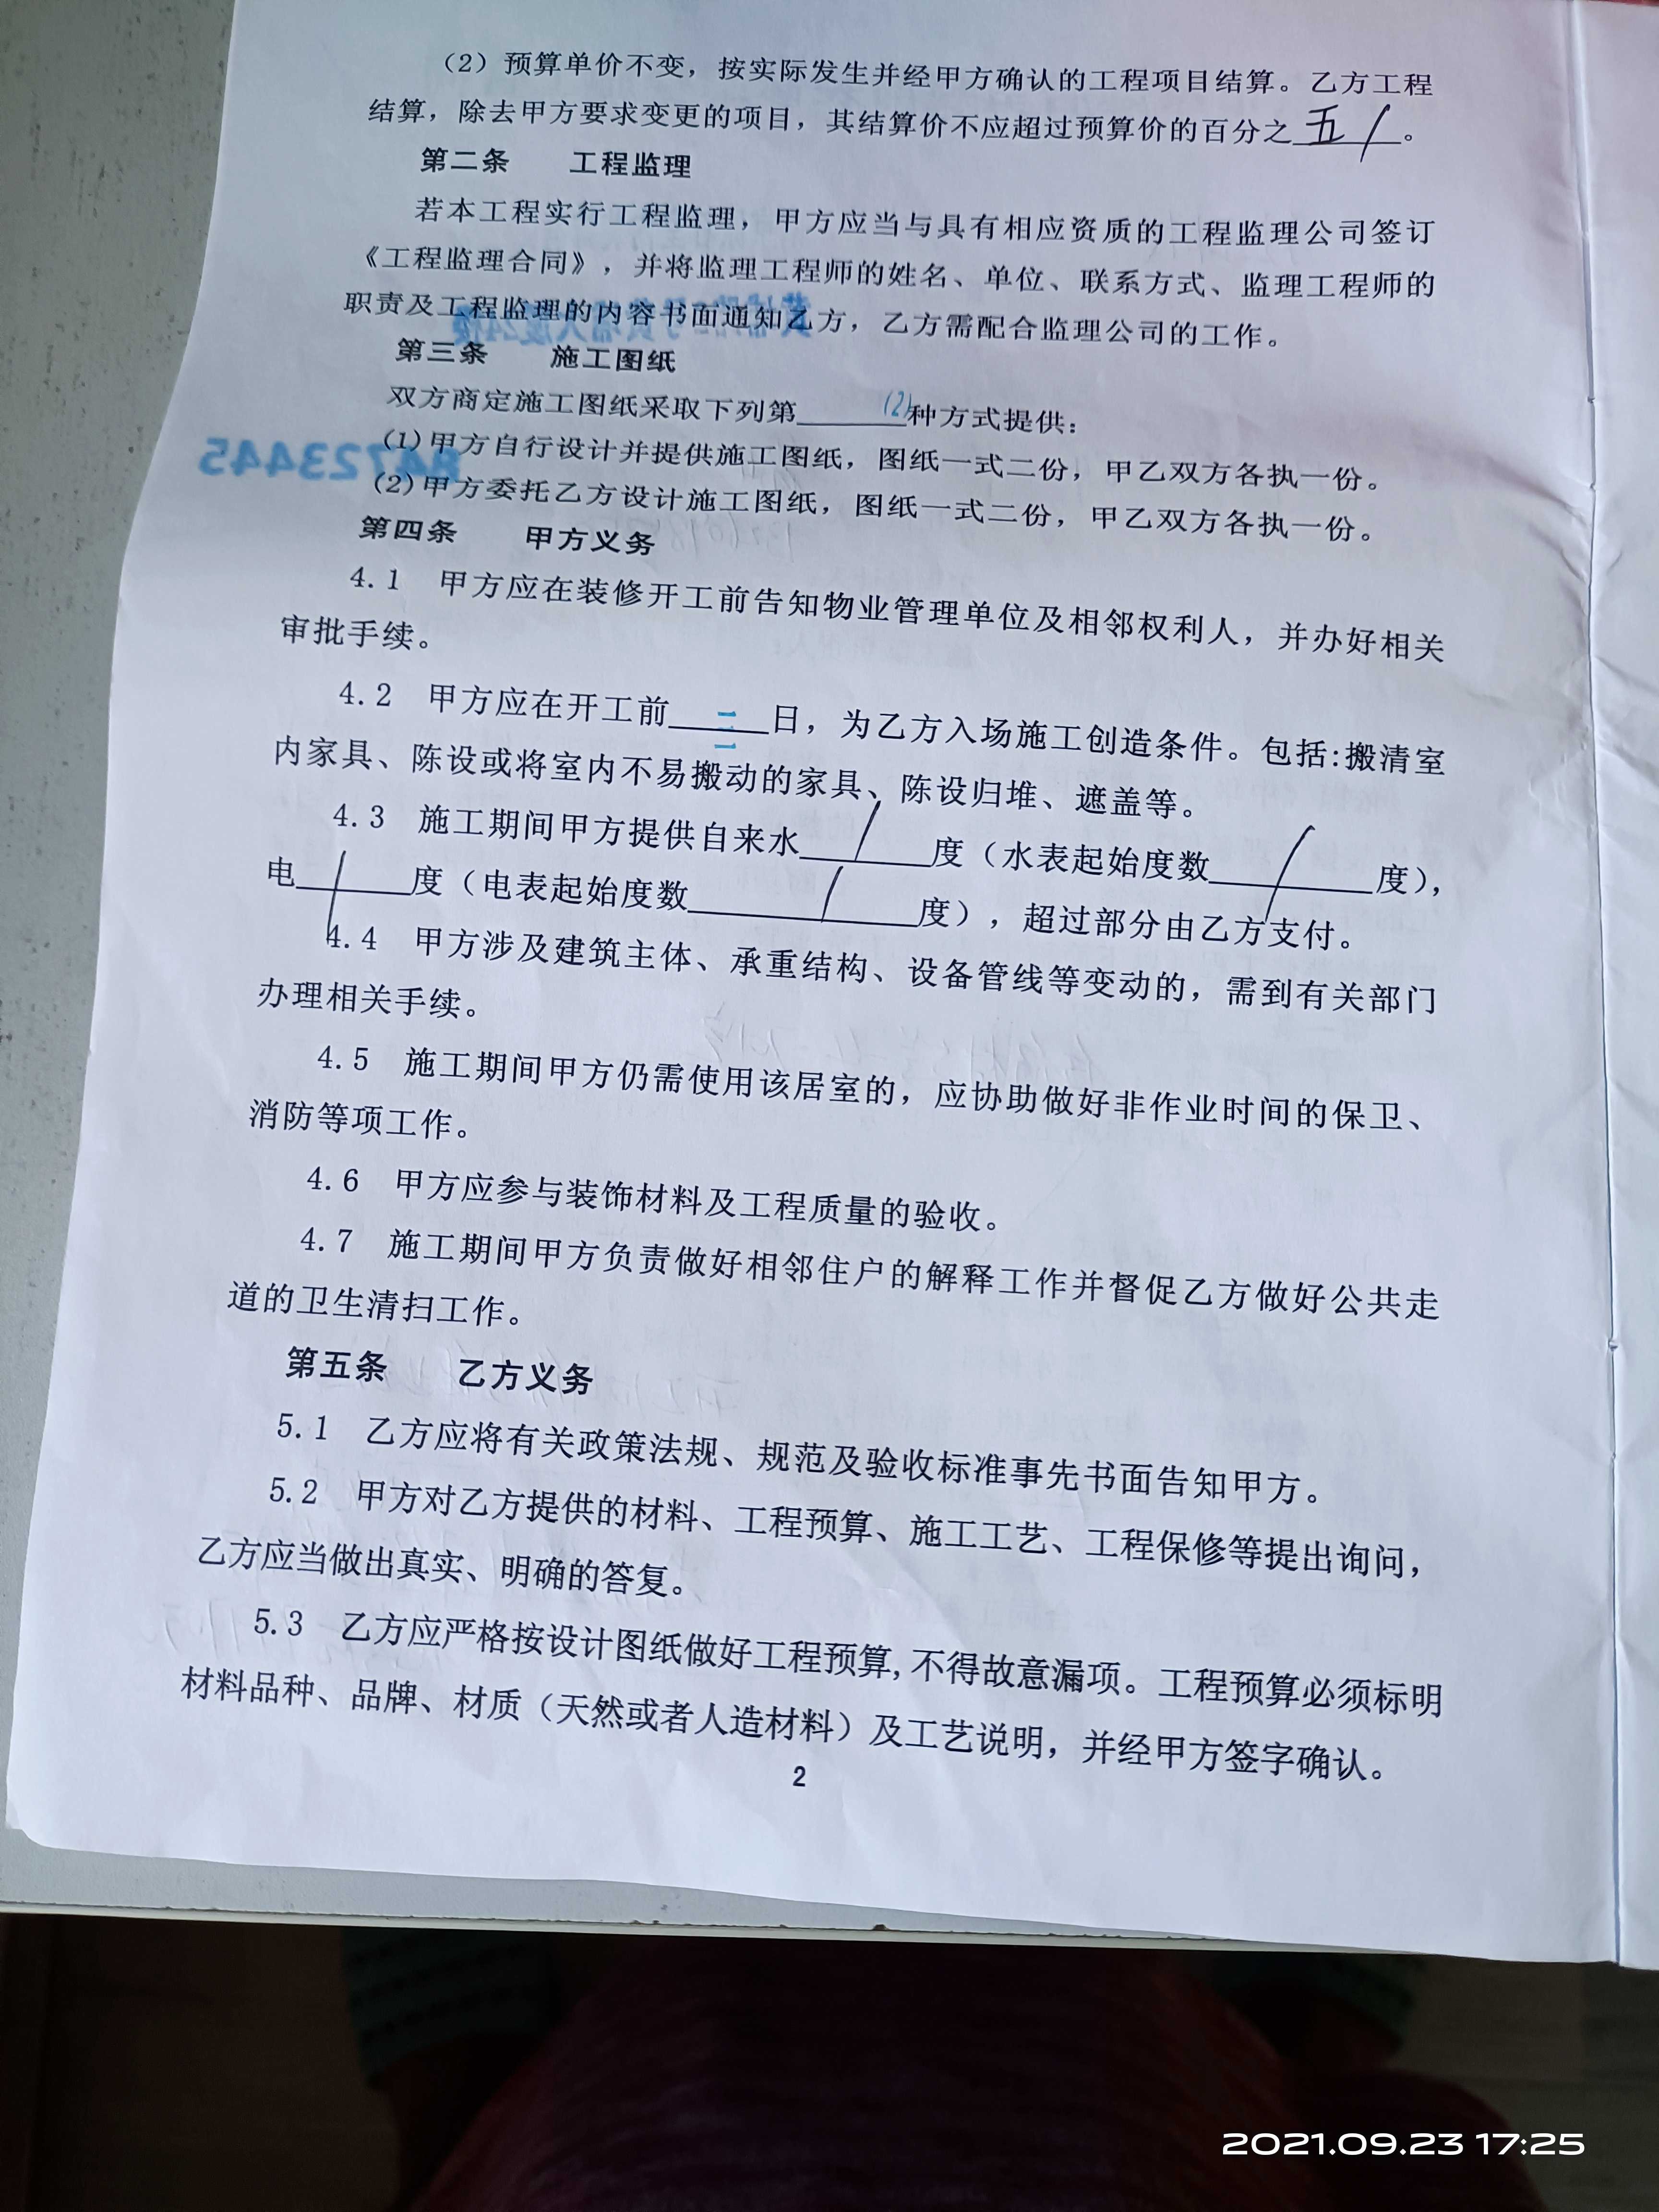 （2）预算单价不变，按实际发生并经甲方确认的工程项目结算。乙方工程
结算，除去甲方要求变更的项目，其结算价不应超过预算价的百分之五/。
第二条　工程监理
若本工程实行工程监理，甲方应当与具有相应资质的工程监理公司签订
《工程监理合同》，并将监理工程师的姓名、单位、联系方式、监理工程师的
职责及工程监理的内容书面通知乙方，乙方需配合监理公司的工作。
第三条　施工图纸
双方商定施工图纸采取下列第(2)种方式提供：
(1)甲方自行设计并提供施工图纸，图纸一式二份，甲乙双方各执一份。
84723445
(2)甲方委托乙方设计施工图纸，图纸一式二份，甲乙双方各执一份。
第四条　甲方义务
4.1　甲方应在装修开工前告知物业管理单位及相邻权利人，并办好相关
审批手续。
4.2　甲方应在开工前 日，为乙方入场施工创造条件。包括:搬清室
内家具、陈设或将室内不易搬动的家具、陈设归堆、遮盖等。
4.3　施工期间甲方提供自来水/度（水表起始度数/度），
电/度（电表起始度数/度），超过部分由乙方支付。
4.4　甲方涉及建筑主体、承重结构、设备管线等变动的，需到有关部门
办理相关手续。
4.5　施工期间甲方仍需使用该居室的，应协助做好非作业时间的保卫、
消防等项工作。
4.6　甲方应参与装饰材料及工程质量的验收。
4.7　施工期间甲方负责做好相邻住户的解释工作并督促乙方做好公共走
道的卫生清扫工作。
第五条　乙方义务
5.1　乙方应将有关政策法规、规范及验收标准事先书面告知甲方。
5.2　甲方对乙方提供的材料、工程预算、施工工艺、工程保修等提出询问，
乙方应当做出真实、明确的答复。
5.3　乙方应严格按设计图纸做好工程预算,不得故意漏项。工程预算必须标明
材料品种、品牌、材质（天然或者人造材料）及工艺说明，并经甲方签字确认。
2
2021.09.23 17:25